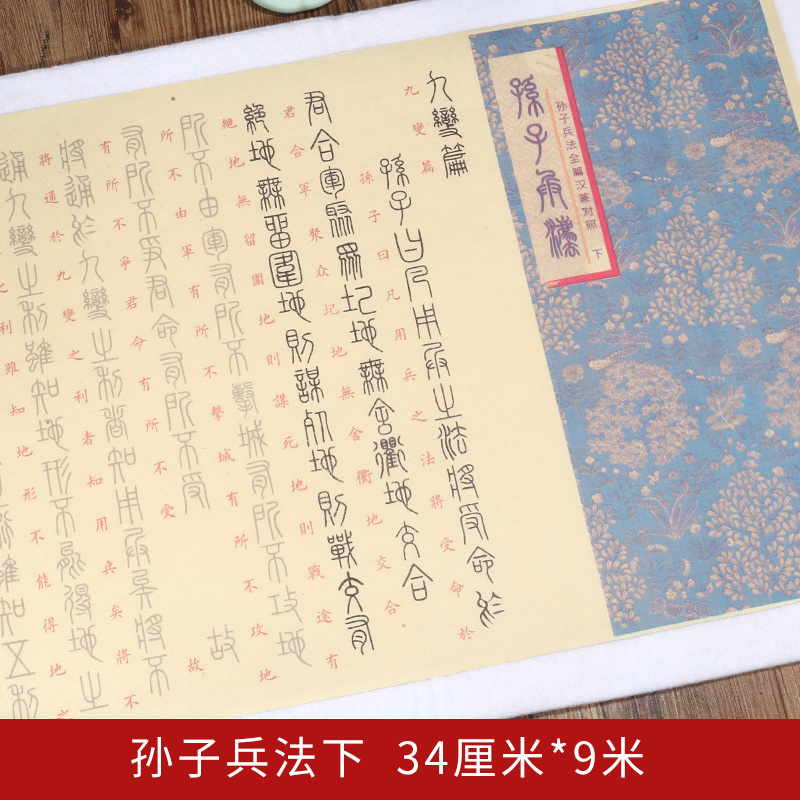 孫子兵法
孙子兵法全篇汉篆对照 下
九變篇
九變篇
孫子曰凡用兵之法將受命於
孫子曰凡用兵之法將受命於
君合軍聚眾圮地無舍衢地交合
君合軍聚众圮地無舍衢地交合
絕地無留圍地則謀死地則戰途有
絶地無留圍地則謀死地則戰途有
所不由軍有所不擊城有所不攻地
所不由軍有所不擊城有所不攻地
有所不爭君命有所不受 故
有所不爭君命有所不受 故
將通於九變之利者知用兵矣將不
將通於九變之利者知用兵矣將不
通九變之利雖知地形不能得地之
之利雖知地形不能得地之
雖知五利
孙子兵法下 34厘米*9米